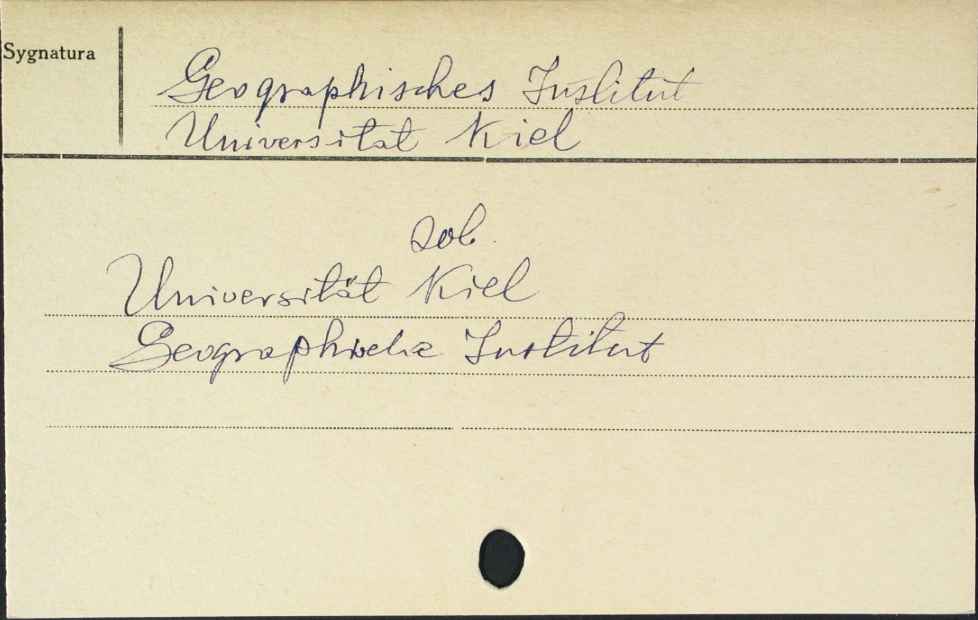 Sygnatura
Geographisches Institut
Universität Kiel
zob.
Universität Kiel
Geographische Institut